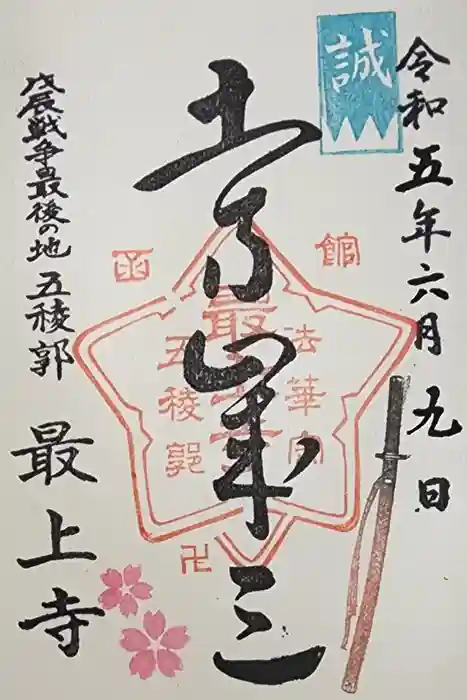 令和五年六月九日
誠
土方歳三
函館
法華宗
最上寺
五稜郭
卍
戊辰戦争最後の地 五稜郭
最上寺